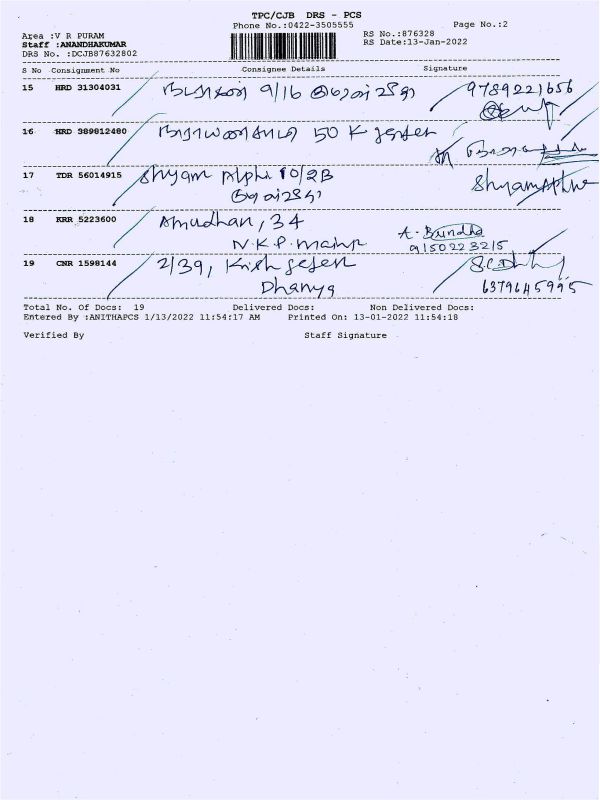 TPC/CJB DRS - PCS
Phone No.:0422-3505555
Page No.:2
Area :V R PURAM
RS No.:876328
Staff :ANANDHAKUMAR
RS Date:13-Jan-2022
DRS No. :DCJB87632802
S No Consignment No Consignee Details Signature
15 HRD 31304031 9/16 9789221656
16 HRD 389812480 50 K
17 TDR 56014915 Shyam Alpha 10/2B
18 KRR 5223600 Amudhan, 34
N.K.P. A. Brindha
9150223215
19 CNR 1598144 2/39, Krish
Dhanya 6379645995
Total No. Of Docs: 19 Delivered Docs: Non Delivered Docs:
Entered By :ANITHAPCS 1/13/2022 11:54:17 AM Printed On: 13-01-2022 11:54:18
Verified By Staff Signature